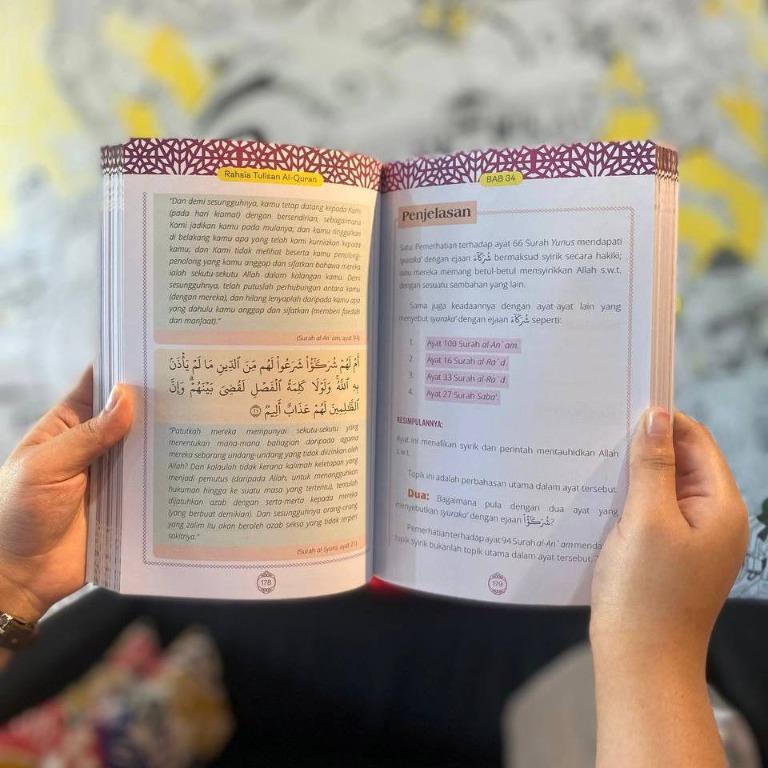 Rahsia Tulisan Al-Quran
"Dan demi sesungguhnya, kamu tetap datang kepada Kami
(pada hari kiamat) dengan bersendirian, sebagaimana
Kami jadikan kamu pada mulanya; dan kamu tinggalkan
di belakang kamu apa yang telah kami kurniakan kepada
kamu; dan Kami tidak melihat beserta kamu penolong-
penolong yang kamu anggap dan sifatkan bahawa mereka
ialah sekutu-sekutu Allah dalam kalangan kamu. Demi
sesungguhnya, telah putuslah perhubungan antara kamu
(dengan mereka), dan hilang lenyaplah daripada kamu apa
yang dahulu kamu anggap dan sifatkan (memberi faedah
dan manfaat)."
(Surah al-An'am, ayat 94)
أَمْ لَهُمْ شُرَكَـٰٓؤُا۟ شَرَعُوا۟ لَهُم مِّنَ ٱلدِّينِ مَا لَمْ يَأْذَنۢ
بِهِ ٱللَّهُ ۚ وَلَوْلَا كَلِمَةُ ٱلْفَصْلِ لَقُضِىَ بَيْنَهُمْ ۗ وَإِنَّ
ٱلظَّـٰلِمِينَ لَهُمْ عَذَابٌ أَلِيمٌ ٢١
"Patutkah mereka mempunyai sekutu-sekutu yang
menentukan mana-mana bahagian daripada agama
mereka sebarang undang-undang yang tidak diizinkan oleh
Allah? Dan kalaulah tidak kerana kalimah ketetapan yang
menjadi pemutus (daripada Allah, untuk menangguhkan
hukuman hingga ke suatu masa yang tertentu), tentulah
dijatuhkan azab dengan serta-merta kepada mereka
(yang berbuat demikian). Dan sesungguhnya orang-orang
yang zalim itu akan beroleh azab seksa yang tidak terperi
sakitnya."
(Surah al-Syura, ayat 21)
178
BAB 34
Penjelasan
Satu: Pemerhatian terhadap ayat 66 Surah Yunus mendapati
syuraka' dengan ejaan شُرَكَآءَ bermaksud syirik secara hakiki;
iaitu mereka memang betul-betul mensyirikkan Allah s.w.t.
dengan sesuatu sembahan yang lain.
Sama juga keadaannya dengan ayat-ayat lain yang
menyebut syuraka' dengan ejaan شُرَكَآءَ seperti:
1. Ayat 100 Surah al-An'am.
2. Ayat 16 Surah al-Ra'd.
3. Ayat 33 Surah al-Ra'd.
4. Ayat 27 Surah Saba'.
KESIMPULANNYA:
Ayat ini menafikan syirik dan perintah mentauhidkan Allah
s.w.t.
Topik ini adalah perbahasan utama dalam ayat tersebut.
Dua: Bagaimana pula dengan dua ayat yang
menyebutkan syuraka' dengan ejaan شُرَكَـٰٓؤُا۟?
Pemerhatian terhadap ayat 94 Surah al-An'am
topik syirik bukanlah topik utama dalam ayat tersebut.
179